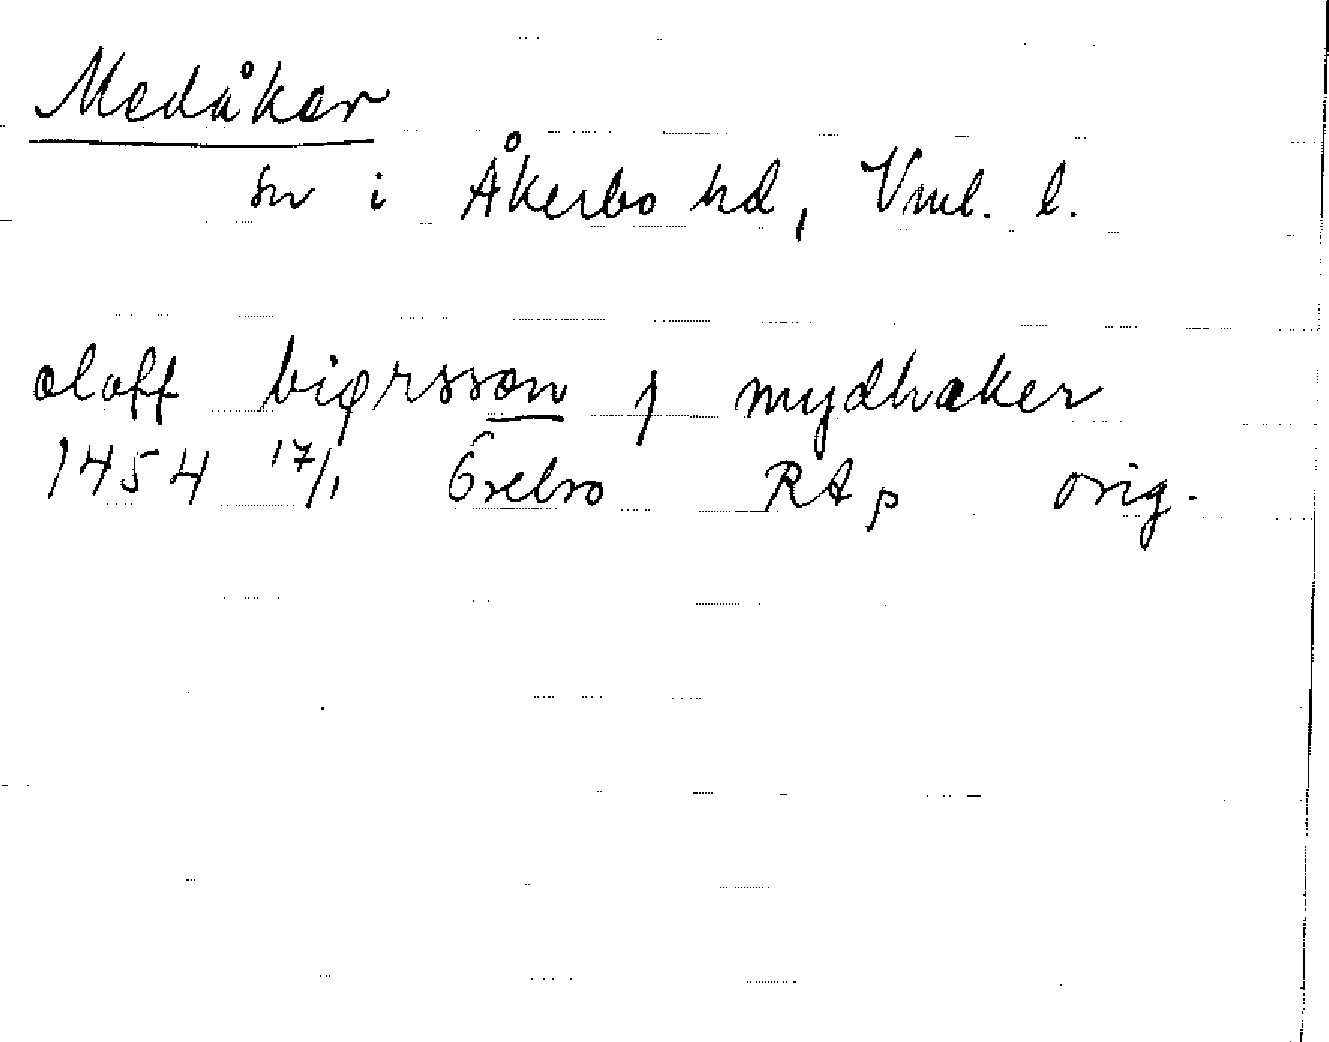 Medåker
sn i Åkerbo hd, Vml. l.
olaff biørsson j mydhaker
1454 17/1 Örebro RAp orig.